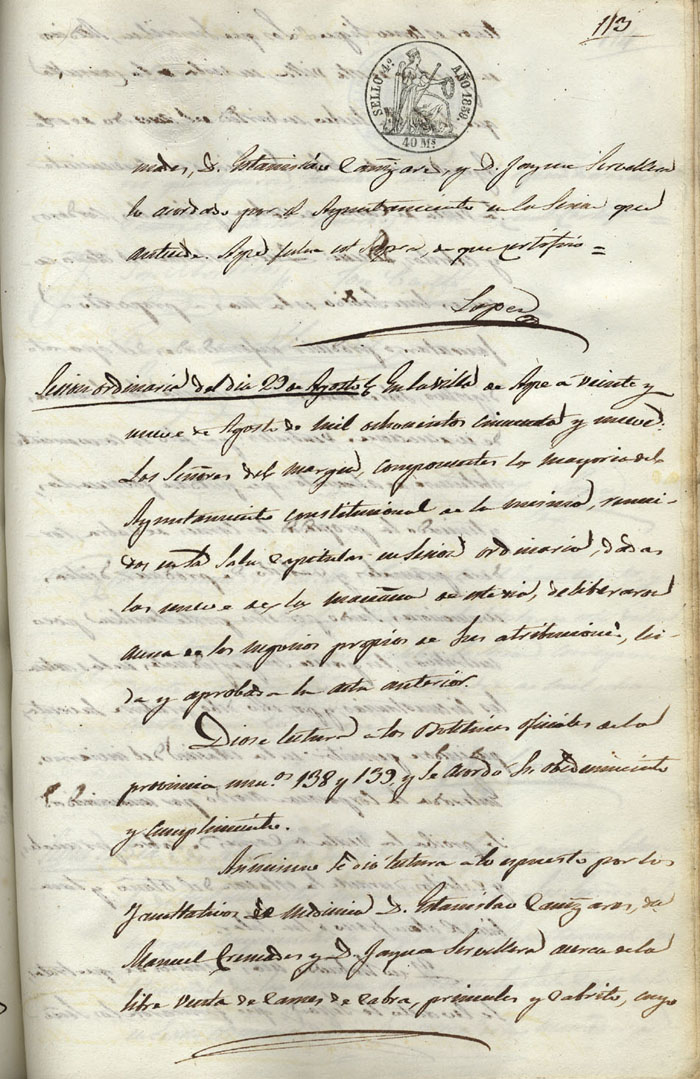 113
SELLO 4º AÑO 1859.
40 Ms
nades, D. Estanislao Cañizares, y D. Jayme Servellera
lo acordado por el Ayuntamiento en la Sesion que
antecede. Aspe fecha ut supra, de que certifico =
Lopez
Sesion ordinaria del dia 29 de Agosto En la villa de Aspe a veinte y
nueve de Agosto de mil ochocientos cincuenta y nueve:
Los Señores del margen, componentes la mayoria del
Ayuntamiento constitucional de la misma, reuni-
dos en la Sala Capitular en Sesion ordinaria, dadas
las nueve de la mañana de este dia, deliberaron
acerca de los negocios propios de sus atribuciones, lei-
da y aprobada la acta anterior.
Diose lectura a los Boletines oficiales de la
provincia numos 138 y 139 y se acordó su obedecimiento
y cumplimiento.
Asimismo se dio lectura a lo espuesto por los
facultativos de medicina D. Estanislao Cañizares, Dn
Manuel Cremades y D. Jayme Servellera acerca de la
libre venta de carnes de cabra, primales y cabrito, cuyo